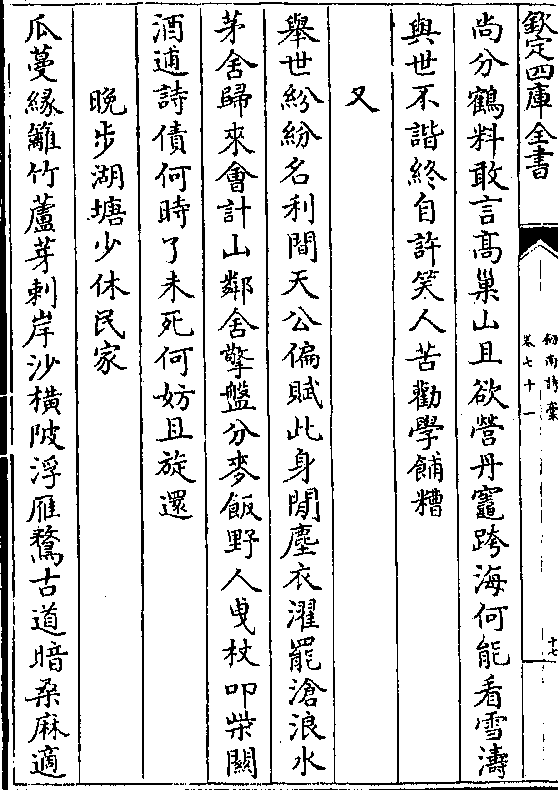 欽定四庫全書
劍南詩稾
卷七十一
十七
尚分鶴料敢言髙巢山且欲營丹竈跨海何能看雪濤
與世不諧終自許笑人苦勸學餔糟
又
舉世紛紛名利間天公偏賦此身閒塵衣濯罷滄浪水
茅舍歸來會計山鄰舍擎盤分麥飯野人曵杖叩柴關
酒逋詩債何時了未死何妨且旋還
晩步湖塘少休民家
瓜蔓緣籬竹蘆芽刺岸沙橫陂浮雁鶩古道暗桑麻適